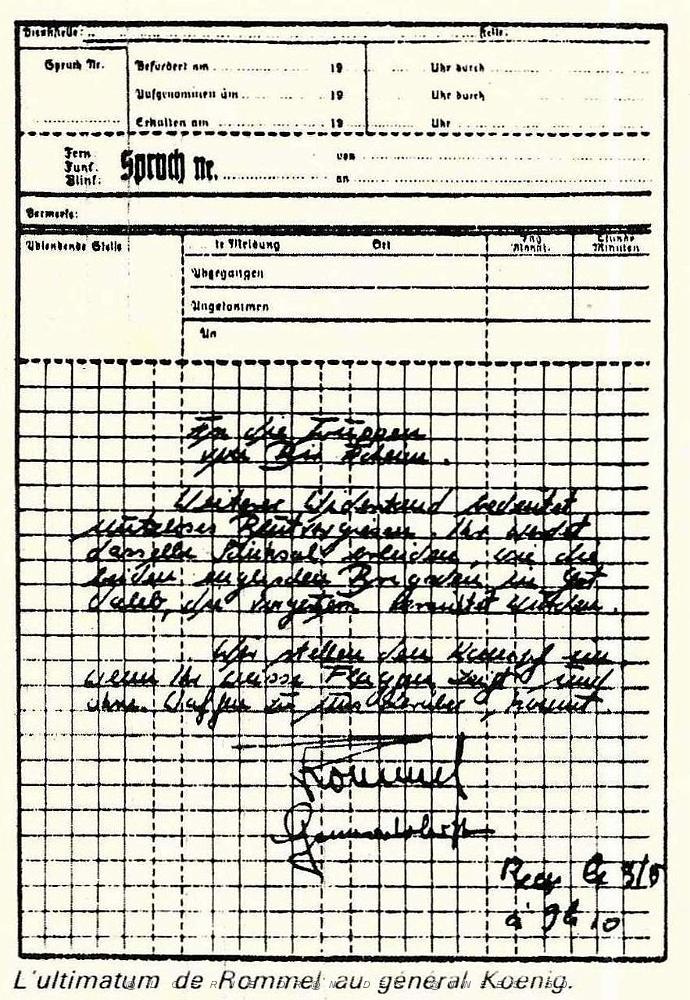 Dienststelle: Stelle.
Spruch Nr. Befördert am 19 Uhr durch
Aufgenommen am 19 Uhr durch
Erhalten am 19 Uhr
Fern
Funk
Blink
Spruch nr. von
an
Vermerke:
Absendende Stelle te Meldung Ort Tag Monat Stunde Minuten
Abgegangen
Angekommen
An
An die Truppen
von Bir Acheim.
Weiterer Widerstand bedeutet
nutzloses Blutvergiesen. Ihr werdet
dasselbe Schicksal erleiden, wie die
beiden englischen Brigaden in Got
Ualeb, die vorgestern vernichtet wurden.
Wir stellen den Kampf ein,
wenn Ihr weisse Flaggen zeigt und
ohne Waffen zu uns herüber kommt.
Rommel
Generaloberst
Reçu le 3/6
à 9h 10
L'ultimatum de Rommel au général Koenig.